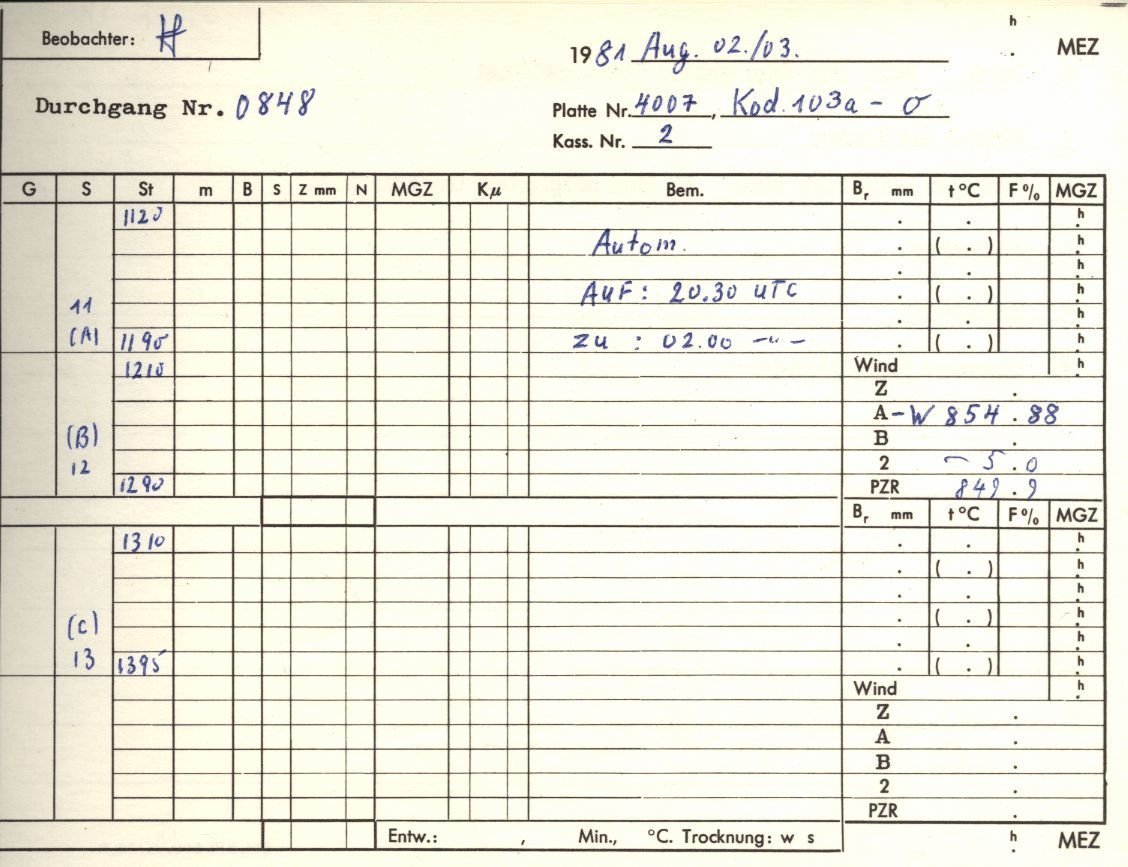 Beobachter: H
1981 Aug. 02./03. h . MEZ
Durchgang Nr. 0848
Platte Nr. 4007, Kod. 103a - O
Kass. Nr. 2
G S St m B S Z mm N MGZ Kμ Bem. Br mm t °C F % MGZ
1120 . . h
Autom. . ( . ) h
. . h
11 AUF: 20.30 UTC . ( . ) h
. . h
(A) 1190 ZU : 02.00 -"- . ( . ) h
1210 Wind h
Z .
A -W 854 . 88
(B) B .
12 2 - 5 . 0
1290 PZR 849 . 9
Br mm t °C F % MGZ
1310 . . h
. ( . ) h
. . h
(C) . ( . ) h
. . h
13 1395 . ( . ) h
Wind h
Z .
A .
B .
2 .
PZR .
Entw.: , Min., °C. Trocknung: w s h . MEZ